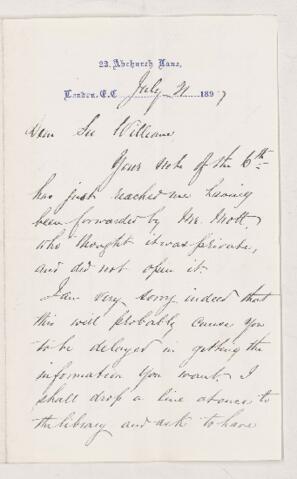 23, Abchurch Lane,
London, E.C. July 21 1897
Dear Sir William
Your note of the 6th
has just reached me having
been forwarded by Mr. Mott
who thought it was private,
and did not open it.
I am very sorry indeed that
this will probably cause you
to be delayed in getting the
information you want. I
shall drop a line at once to
the library and ask to have